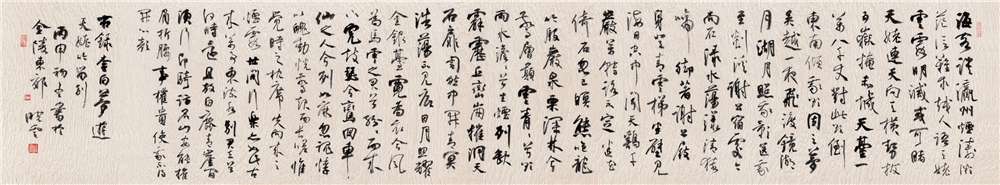 海客谈瀛洲烟涛微
茫信难求越人语天姥
云霓明灭或可睹
天姥连天向天横势拔
五岳掩赤城天台一
万八千丈对此欲倒
东南倾我欲因之梦
吴越一夜飞渡镜湖
月湖月照我影送我
至剡溪谢公宿处今
尚在渌水荡漾清猿
啼脚著谢公屐
身登青云梯半壁见
海日空中闻天鸡千
岩万转路不定迷花
倚石忽已暝熊咆龙
吟殷岩泉栗深林兮
惊层巅云青青兮欲
雨水澹澹兮生烟列缺
霹雳丘峦崩摧洞天
石扉訇然中开青冥
浩荡不见底日月照耀
金银台霓为衣兮风
为马云之君兮纷纷而来
下虎鼓瑟兮鸾回车
仙之人兮列如麻忽魂悸
以魄动恍惊起而长嗟惟
觉时之枕席失向来之
烟霞世间行乐亦如此古
来万事东流水别君去兮何
时还且放白鹿青崖间
须行即骑访名山安能摧
眉折腰事权贵使我不得
开心颜
右录李白梦游
天姥吟留别
丙申初冬书于
金陵东郊